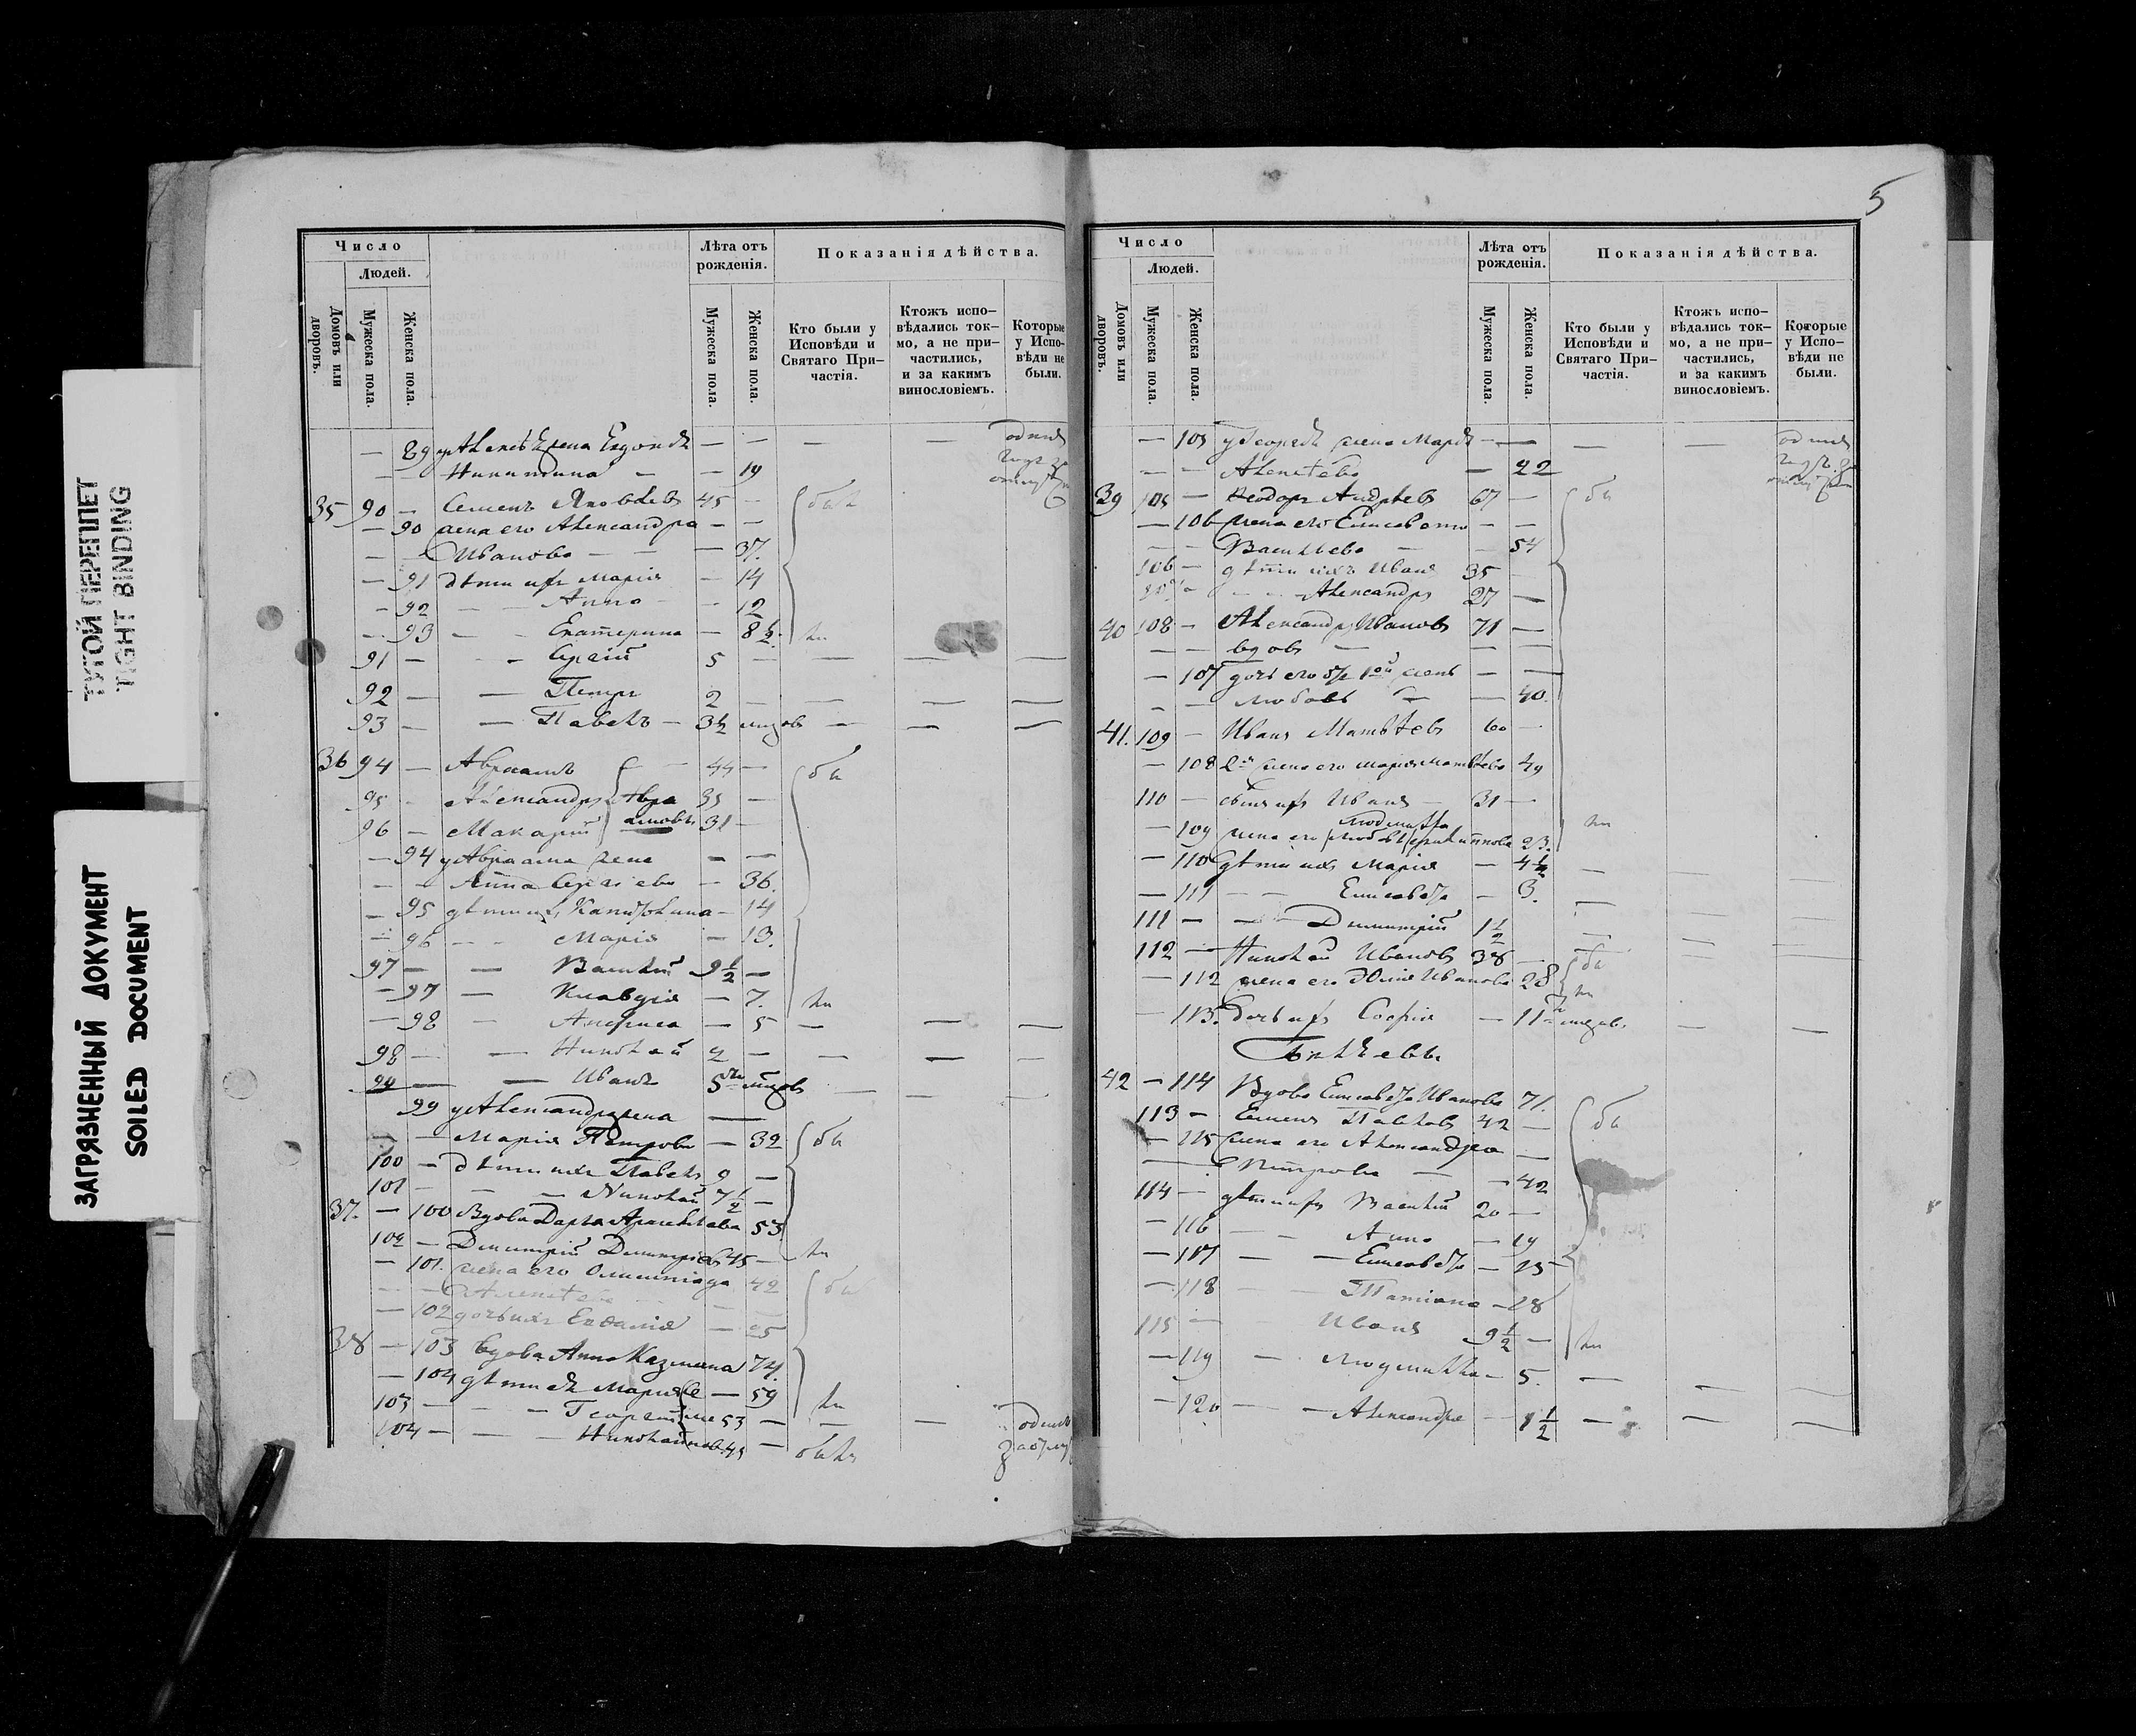 ТУГОЙ ПЕРЕПЛЕТ
TIGHT BINDING
ЗАГРЯЗНЕННЫЙ ДОКУМЕНТ
SOILED DOCUMENT
Число
Людей.
Домовъ или дворовъ.
Мужеска пола.
Женска пола.
Лѣта отъ рожденія.
Мужеска пола.
Женска пола.
Показанія дѣйства.
Кто были у Исповѣди и Святаго При-частія.
Ктожъ испо-вѣдались ток-мо, а не при-частились, и за какимъ винословіемъ.
Которые у Испо-вѣди не были.
— 89 у Алексѣя жена — — — —
— — Никитина — — 19
35 90 — Семенъ Яковлевъ 45 — были
— 90 жена его Александра — —
— — Иванова — — 37.
— 91 дѣти ихъ Марія — 14
— 92 — — Анна — 12
— 93 — — Екатерина — 8½. ли
91 — — Сергій 5 — — — —
92 — — Петръ 2 — — —
93 — — Павелъ — 3½ — — —
36 94 — Авраамъ — 44 — бы
95 — Александръ Авра 35 —
96 — Макарій амовы 31 —
— 94 у Авраама жена — —
— — Анна Сергіева — 36.
— 95 дѣти ихъ Капитолина — 14
— 96 — — Марія — 13.
97 — — Василій 9½ —
— 97 — Клавдія — 7. ли
— 98 — Анфиса — 5 — — —
98 — — Николай 2 — — — —
99 — — Иванъ 5 — — —
99 у Александра жена —
— — Марія Петрова — 32 бы
100 — дѣти ихъ Павелъ 9 —
101 — — — Николай 7½ —
37. — 100 Вдова Дарья 53
102 — Димитрій Димитріевъ 45 — ли
— 101. жена его Олимпіада 42 бы
— — Алексѣева — —
— 102 дочь ихъ 25
38 — 103 Вдова Анна Казмина 74.
— 104 дѣти ея Марія Се — 59 ли
103 — — — Георгій ме 53 — — —
104 — — — Николай новы 45 — были
5
Число
Людей.
Домовъ или дворовъ.
Мужеска пола.
Женска пола.
Лѣта отъ рожденія.
Мужеска пола.
Женска пола.
Показанія дѣйства.
Кто были у Исповѣди и Святаго При-частія.
Ктожъ испо-вѣдались ток-мо, а не при-частились, и за какимъ винословіемъ.
Которые у Испо-вѣди не были.
— 105 у Георгія жена Марія — — — —
— — Алексѣева — 22
39 105 — Ѳеодоръ Андреевъ 67 — бы
— 106 жена его Елисавета — —
— — Васильева — — 54
106 — дѣти ихъ Иванъ 35 —
107 — — — Александръ 27 —
40 108 — Александръ Ивановъ 71 —
— — вдовъ — — —
— 107 дочь его — —
— — Любовь — 40.
41. 109 — Иванъ Матвѣевъ 60 —
— 108 2я жена его Марія Матвѣева 49
110 — сынъ ихъ Иванъ — 31 —
Людмила
— 109 жена его (Любовь) 23. ли
— 110 дѣти ихъ Марія — 4½ — — —
— 111 — — Елисавета — 3. — — —
111 — — — Димитрій 1½ — — —
112 — Николай Ивановъ 38 — бы
— 112 жена его Юлія Иванова 28 ли
— 113. дочь ихъ Софія — 11 — —
42 — 114 Вдова Елисавета Иванова 71. бы
113 — Семенъ Павловъ 42 —
— 115 жена его Александра —
— — Петрова — — 42
114 — дѣти ихъ Василій 20 —
— 116 — — Анна — 19
— 117 — — Елисавета —
— 118 — — Татіана —
115 — — Иванъ 9½ — ли
— 119 — Людмилла — 5. — — —
— 120 — — Александра — 1½ — — —